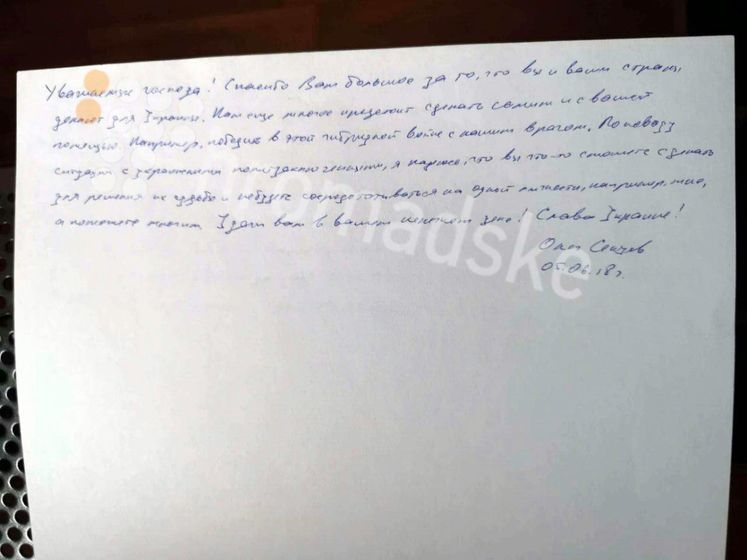 Уважаемые господа! Спасибо Вам большое за то, что вы и ваши страны
делают для Украины. Нам еще многое предстоит сделать самим и с вашей
помощью. Например, победить в этой гибридной войне с нашим врагом. По поводу
ситуации с украинскими политзаключенными, я надеюсь, что вы что-то сможете сделать
для решения их судьбы и небудете сосредотачиваться на одной личности, например, мне,
а поможете многим. Удачи вам в вашем нелегком деле! Слава Украине!
Олег Сенцов
05.06.18 г.
hromadske